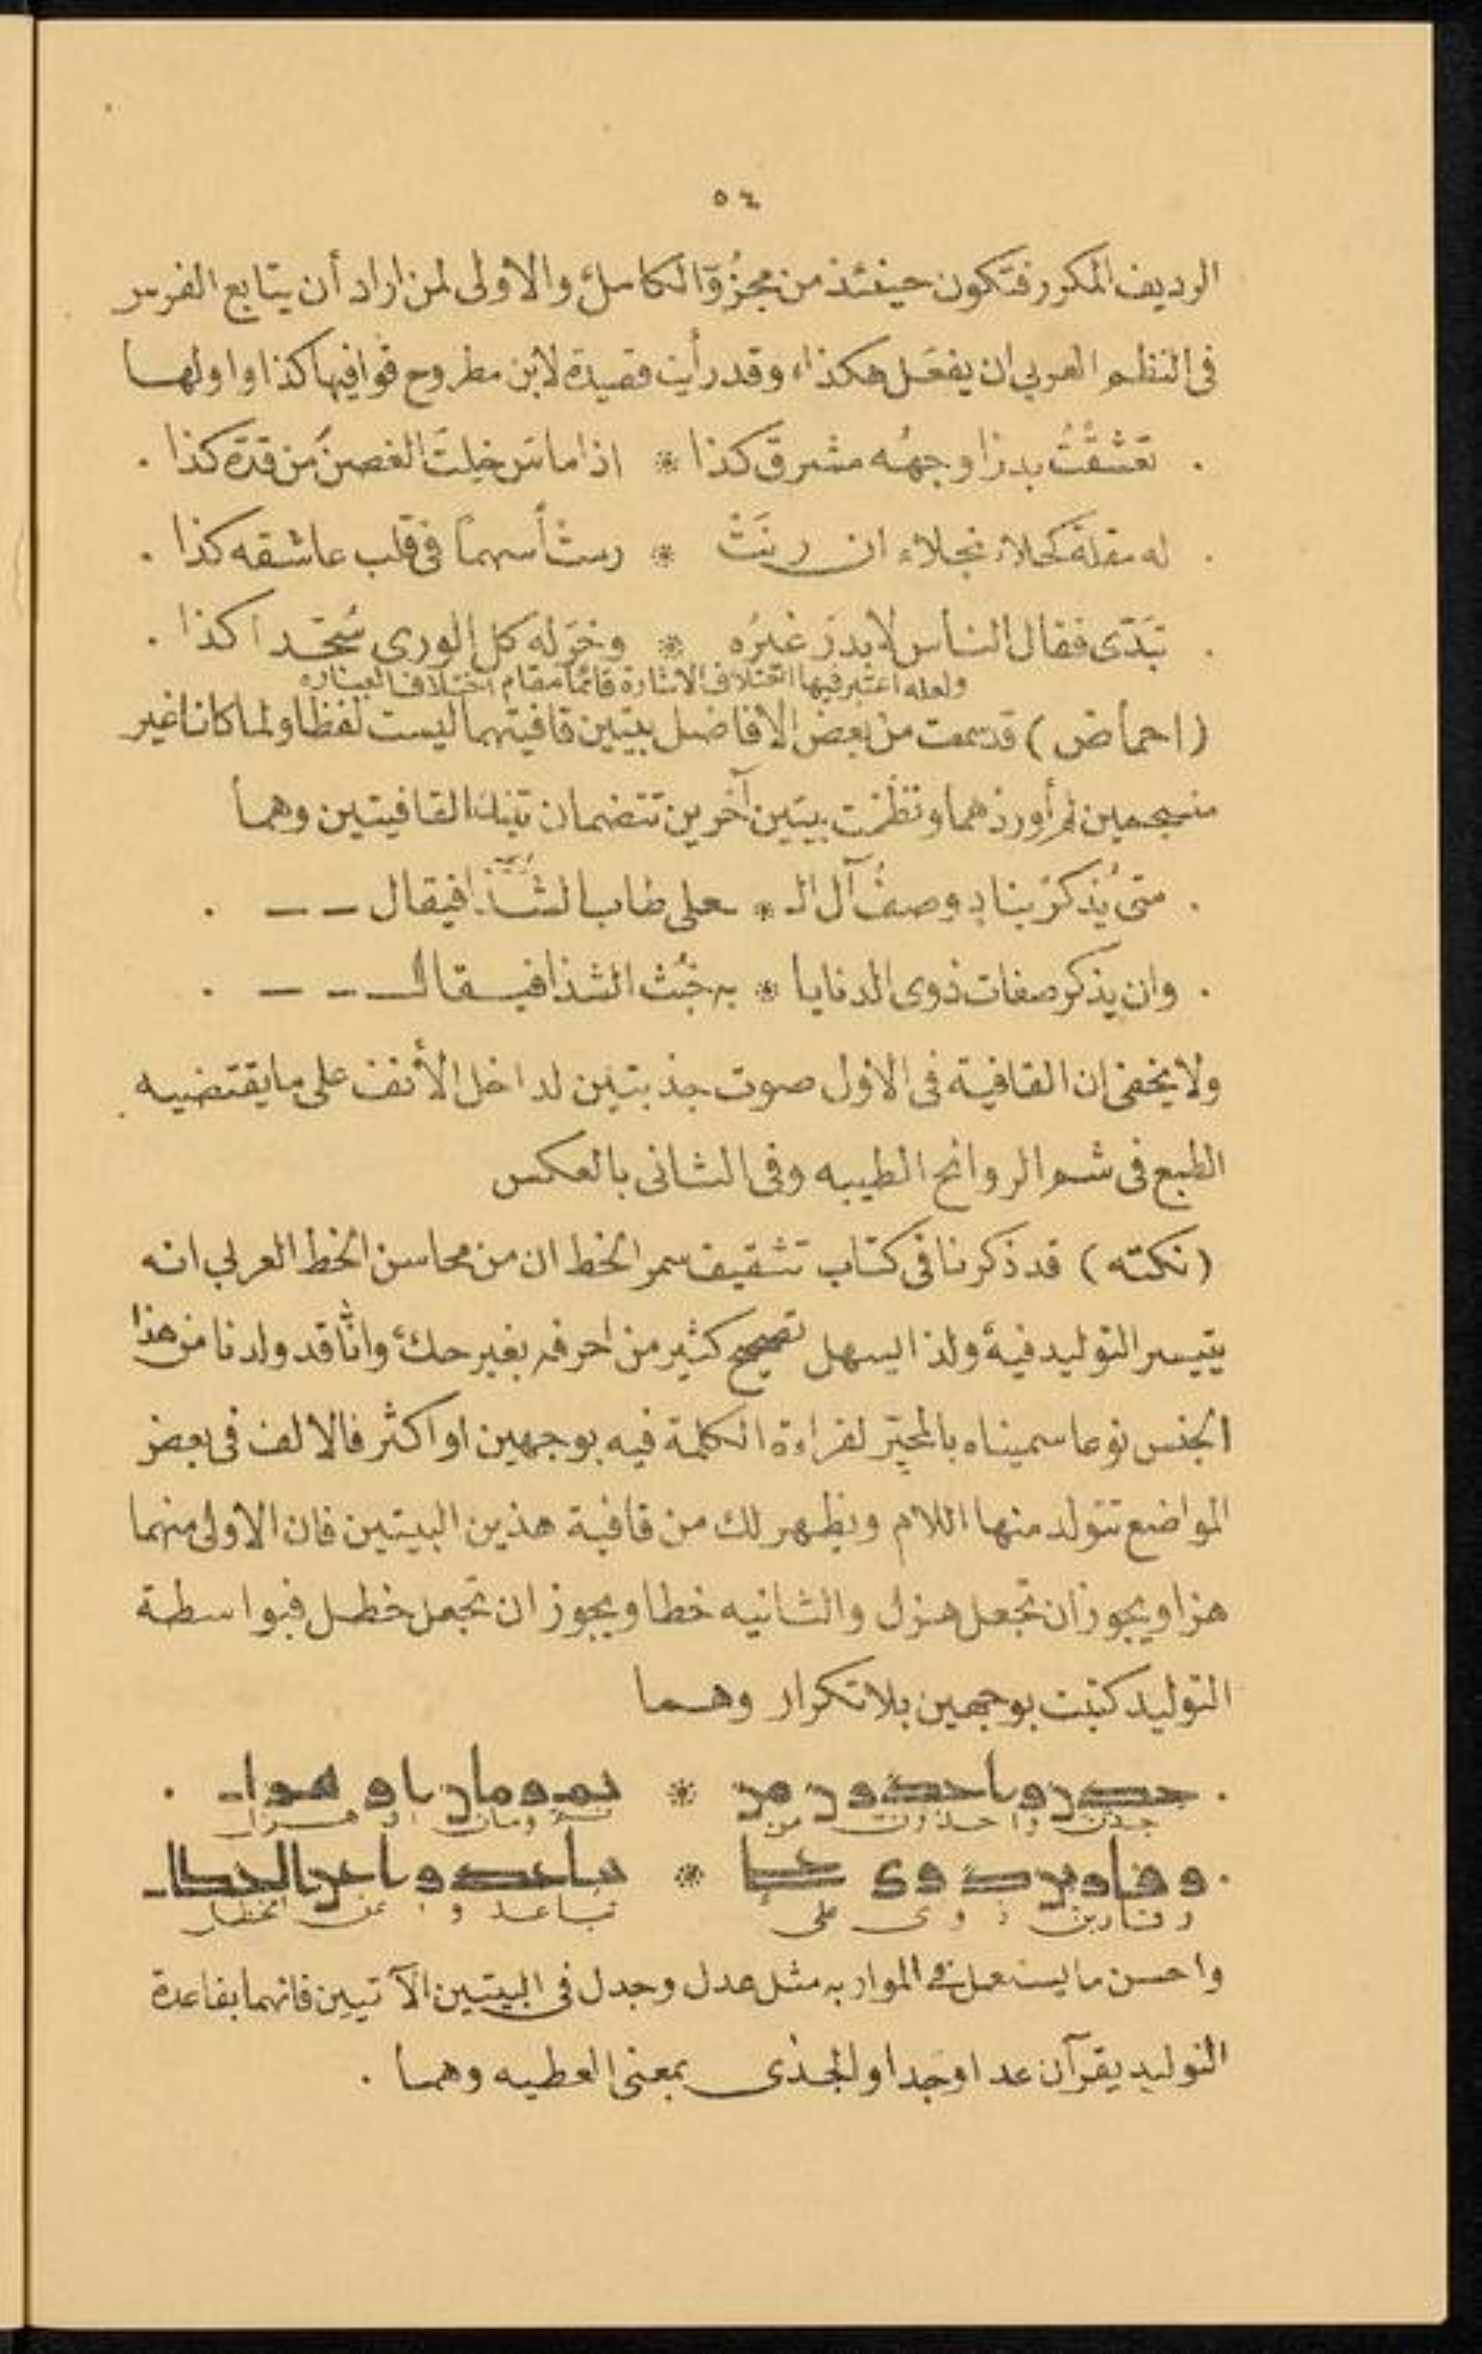 ٥٤
الرديف المكرر فتكون حينئذ من مجزوّ الكامل والاولى لمن اراد أن يتابع الفرس
فى النظم العربي ان يفعَل هكذا، وقد رأيت قصيدة لابن مطروح قوافيها كذا واولها
. تعَشَّقْتُ بدرًا وجهُه مشرقٌ كذا * اذا ماسَ خِلتَ الغصنَ من قدّه كذا .
. له مقلة كحلاء نجلاء ان رنَتْ * رمتْ أسهمًا فى قلب عاشقه كذا .
. تبَدّى فقال الناس لا بدرَ غيرُه * وخرّ له كل الورى سُجّدا كذا .
ولعله اعتبر فيها اختلاف الاشارة قائما مقام اختلاف العباره
(احماض) قد سمعت من بعض الافاضل بيتين قافيتهما ليست لفظا ولما كانا غير
منسجمين لم أوردهما ونظمت بيتين آخرين تتضمان تينك القافيتين وهما
. متى يُذكرْ بناد وصفُ آل الـ * ـعلى طاب الشَّذا فيقال ـ ـ .
. وان يذكر صفات ذوى الدنايا * به خبُث الشذا فيقال ـ ـ .
ولا يخفى ان القافية فى الاول صوت جذبتين لداخل الأنف على ما يقتضيه
الطبع فى شم الروائح الطيبه وفى الثانى بالعكس
(نكته) قد ذكرنا فى كتاب تثقيف سمر الخط ان من محاسن الخط العربي انه
يتيسر التوليد فيه ولذا يسهل تصحيح كثير من احرفه بغير حك وانّا قد ولدنا من هذا
الجنس نوعا سميناه بالمحيّر لقراءة الكلمة فيه بوجهين او اكثر فالالف فى بعض
المواضع تتولد منها اللام ويظهر لك من قافية هذين البيتين فان الاولى منهما
هزا ويجوز ان تجعل هزل والثانيه خطا ويجوز ان تجعل خطل فبواسطة
التوليد كتبت بوجهين بلا تكرار وهما
واحسن ما يستعمل فى المواربه مثل عدل وجدل فى البيتين الآتيين فانهما بقاعدة
التوليد يقرآن عدا وجدا والجدى بمعنى العطيه وهما .